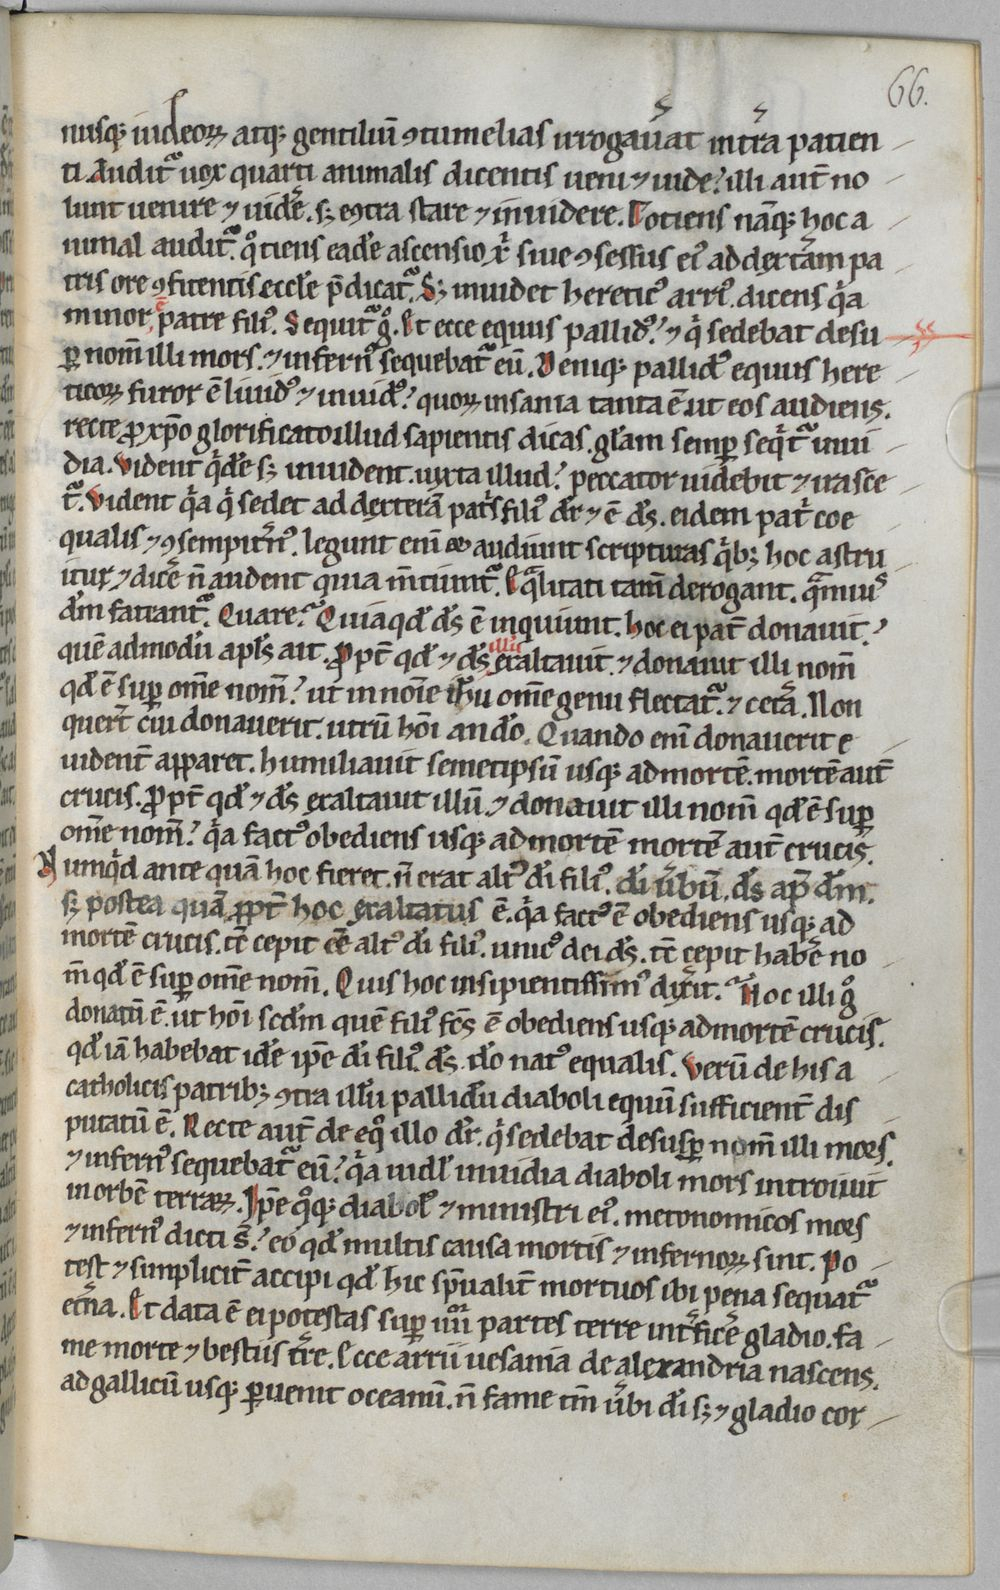 66.
nusq; iudeoꝝ atq; gentiliū ꝯtumelias irrogaūat int̄ra patien
ti. Audit᷑ uox quarti animalis dicentis ueni ⁊ uide? illi aut̄ no
lunt uenire ⁊ uidē. s; ꝯtra stare ⁊ inuidere. Totiens nāq; hoc a
nimal audit᷑. qͦtiens eadē ascensio xp̄i siue ꝯsessus eiꝰ ad dextam pa
tris ore ꝯfitentis eccl̄e p̄dicat᷑. S; inuidet hereticꝰ arriꝰ. dicens qͥa
minor ē patre filiꝰ. Sequit᷑ gͦ. Et ecce equus pallidꝰ? ⁊ qͥ sedebat desu
ꝑ nom̄ illi mors. ⁊ infernꝰ sequebat᷑ eū. Deniq; pallidꝰ equus here
ticoꝝ furor ē liuidꝰ ⁊ inuidꝰ? quoꝝ insania tanta ē. ut eos audiens.
recte ꝓ xp̄o glorificato illud sapientis dicas. gl̄am semꝑ seqͥt᷑ inui
dia. Vident qͥdē s; inuident. iuxta illud? peccator uidebit ⁊ irasce
t᷑. Vident qͥa qͥ sedet ad dexterā pat̄s filiꝰ dr̄ ⁊ ē ds̄. eidem patͥ coe
qualis ⁊ ꝯsempitn̄ꝰ. legunt enī audiunt scripturas qͥb; hoc astru
itur ⁊ dicē n̄ audent quia m̄tiunt᷑. Eqͣlitati tam̄ derogant. qͣmuis
dm̄ fateant᷑. Quare? Quia qd̄ ds̄ ē inquiunt. hoc ei pat̄ donauit?
quē admodū apl̄s ait. Propt̄ qd̄ ⁊ ds̄ illū exaltauit. ⁊ donauit illi nom̄
qd̄ ē suꝑ om̄e nom̄? ut in noīe ih̄u om̄e genu flectat᷑. ⁊ cetā. Non
quert̄ cui donauerit. utrū hōi an dō. Quando enī donauerit e
uident̄ apparet. humiliauit semetipsū usq; ad mortē. mortē aut̄
crucis. Propt̄ qd̄ ⁊ ds̄ exaltauit illū. ⁊ donauit illi nom̄ qd̄ ē suꝑ
om̄e nom̄? qͥa factꝰ obediens usq; ad mortē mortē aut̄ crucis.
Numqͥd ante quā hoc fieret. n̄ erat altꝰ dī filiꝰ. dī ūbū. ds̄ ap̄ dm̄.
s; postea quā ꝓpt̄ hoc exaltatus ē. qͥa factꝰ ē obediens usq; ad
mortē crucis. tc̄ cepit eē̄ altꝰ dī filiꝰ. unicꝰ dei ds̄. tc̄ cepit habē no
m̄ qd̄ ē suꝑ om̄e nom̄. Quis hoc insipientissimꝰ dix̄it? Hoc illi gͦ
donatū ē. ut hōi scd̄m quē filiꝰ fc̄s ē obediens usq; ad mortē crucis.
qd̄ iā habebat idē ip̄e dī filiꝰ. ds̄. dō natꝰ equalis. Verū de his a
catholicis patrib; ꝯtra illū pallidū diaboli equū sufficient̄ dis
putatū ē. Recte aut̄ de eqͦ illo dr̄. qͥ sedebat desusꝑ nom̄ illi mors.
⁊ infernꝰ sequebat᷑ eū? qͥa uidl̄ inuidia diaboli mors introiuit
in orbē terraꝝ. Ip̄e qͦq; diabolꝰ ⁊ ministri eiꝰ. metonomicos mors
⁊ infernꝰ dicti s̄? eo qd̄ multis causa mortis ⁊ infernoꝝ sint. Po
test ⁊ simplicit̄ accipi qd̄ hic sp̄ualit̄ mortuos ibi pena sequat᷑
et̄na. Et data ē ei potestas suꝑ iiiior partes terre int̄ficē gladio. fa
me morte ⁊ bestiis tr̄e. Ecce arrii uesania de alexandria nascens.
ad gallicū usq; ꝑuenit oceanū. n̄ fame tm̄ ūbi dī s; ⁊ gladio cor